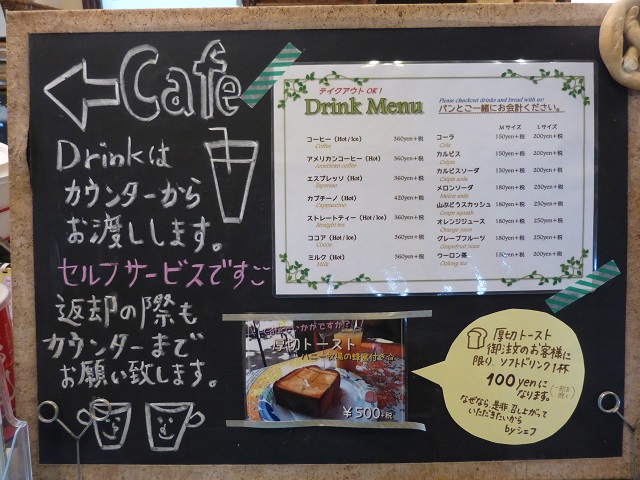 Cafe
Drinkは
カウンターから
お渡しします。
セルフサービスですご
返却の際も
カウンターまで
お願い致します。
テイクアウトOK!
Drink Menu
Please checkout drinks and bread with us!
パンとご一緒にお会計ください。
コーヒー (Hot / Ice) 360yen+税
Coffee
アメリカンコーヒー (Hot) 360yen+税
American coffee
エスプレッソ (Hot) 360yen+税
Espresso
カプチーノ (Hot) 420yen+税
Cappuccino
ストレートティー (Hot / Ice) 360yen+税
Straight tea
ココア (Hot / Ice) 360yen+税
Cocoa
ミルク (Hot) 360yen+税
Milk
Mサイズ Lサイズ
コーラ 150yen+税 200yen+税
Cola
カルピス 150yen+税 200yen+税
Calpis
カルピスソーダ 150yen+税 200yen+税
Calpis soda
メロンソーダ 180yen+税 230yen+税
Melon soda
山ぶどうスカッシュ 180yen+税 230yen+税
Grape squash
オレンジジュース 180yen+税 230yen+税
Orange juice
グレープフルーツ 180yen+税 230yen+税
Grapefruit juice
ウーロン茶 150yen+税 200yen+税
Oolong tea
いかがですか?
厚切トースト
牧場の蜂蜜付き☆
¥500+税
厚切トースト
御注文のお客様に
限り、ソフトドリンク1杯
100yenに
なります。
なぜなら、是非召し上がって
いただきたいから
byシェフ